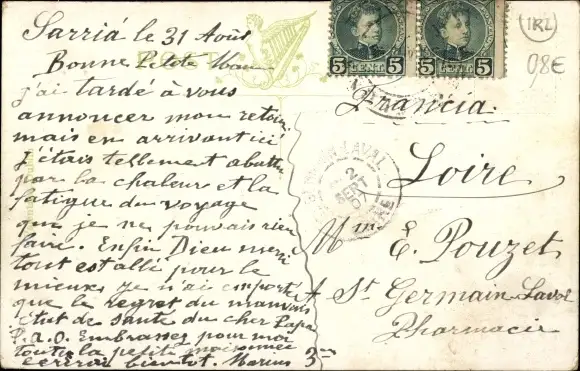 Sarriá le 31 Août
Bonne Petite Mam
j'ai tardé à vous
annoncer mon retour
mais en arrivant ici
j'étais tellement abattu
par la chaleur et la
fatigue du voyage
que je ne pouvais rien
faire. Enfin Dieu merci
tout est allé pour le
mieux. Je n'ai emporté
que le regret du mauvais
état de santé du cher Papa
Embrassez pour moi
toute la petite maisonnée
bientôt. Marius
5 CENT. 5
5 CENT. 5
1RL
0,8€
Francia.
Loire.
LAVAL
2
SEPT
07
LOIRE
Mme E. Pouzet
A St Germain Laval
Pharmacie